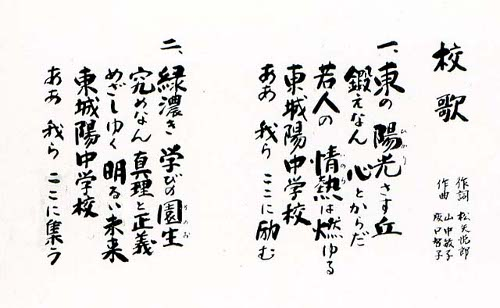 校歌
作詞 松矢悦郎
山中敏子
作曲 坂口智子
一、東の陽光さす丘
ひかり
鍛えなん 心とからだ
若人の 情熱は燃ゆる
東城陽中学校
ああ 我ら ここに励む
二、緑濃き 学びの園生
そのお
究めなん 真理と正義
めざしゆく 明るい未来
東城陽中学校
ああ 我ら ここに集う